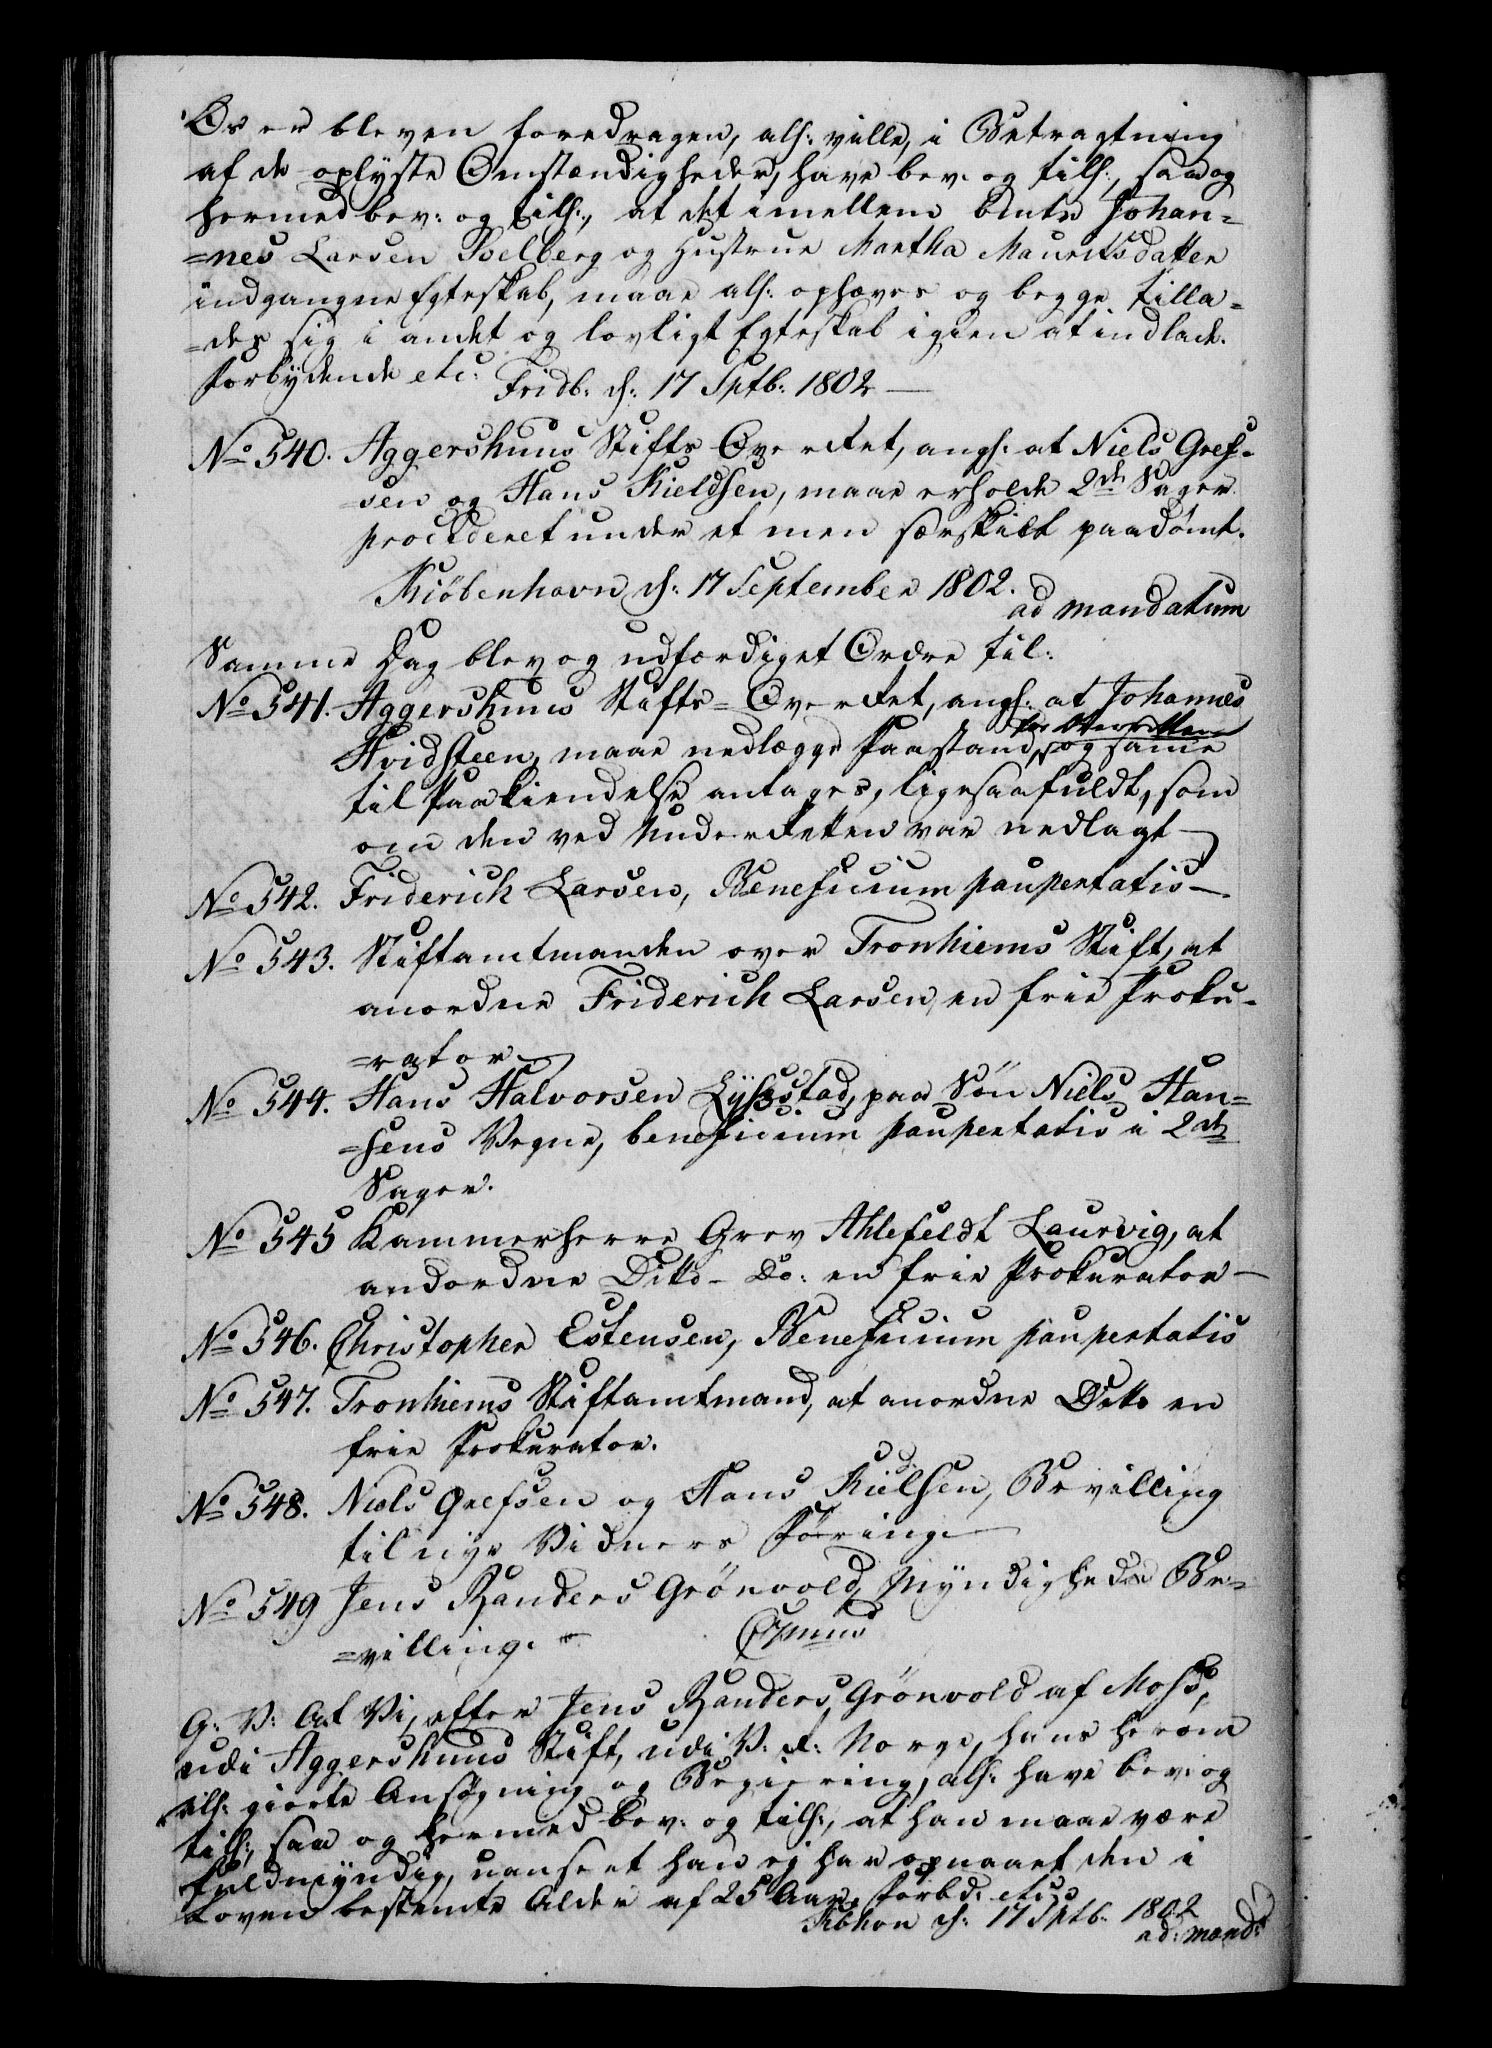 Os er bleven foredragen, als: ville, i Betragtning
af de oplyste Omstændigheder, have bev: og tils:, saa og
hermed bev: og tils:, at det imellem bente Johan=
=nes Larsen Poelberg og Hustrue Martha Mauritsdatter
indgangne Egteskab, maae als: ophæves og begge tilla=
=des sig i andet og lovligt Egteskab igien at indlade.
Forbydende etc: Fridb: d: 17 Sptb: 1802 —
No 540. Aggershuus Stifts Over Ret, angd: at Niels Gref=
=sen og Hans Kieldsen, maae erholde 2de Sager
procederet under et men særskilt paadømt.
Kiöbenhavn d: 17 September 1802.
ad mandatum
Samme Dag blev og udfærdiget Ordre til:
No 541. Aggershuus Stifts=Over Ret, angd: at Johannes
for Overretten
Hvidsteen, maae nedlægge Paastand, og same
til Paakiendelse antages, ligesaafuldt, som
om den ved Under Retten var nedlagt —
No 542. Friderich Larsen, Beneficium paupertatis —
No 543. Stiftamtmanden over Tronhiems Stift, at
anordne Friderich Larsen, en frie Proku=
=rator —
No 544. Hans Halvorsen Lysestad, paa Søn Niels Han=
=sens Vegne, beneficium paupertatis i 2de
Sager.
No 545 Kammerherre Grev Ahlefeldt Laurvig, at
andordne Ditto – Do: en frie Prokurator —
No 546. Christopher Estensen, Beneficium paupertatis
No 547. Tronhiems Stiftamtmand, at anordne Ditto en
frie Prokurator.
No 548. Niels Grefsen og Hans Kieldsen, Bevilling
til nye Vidners Føring —
No 549 Jens Randers Grönvold, Myndigheds Be=
=villing. —
G: V: At Vi, efter Jens Randers Grönvold af Moss,
udi Aggershuus Stift, udi V: R: Norge, hans herom
als: giorte Ansøgning og Begiering, als: have bev: og
tils:, saa og hermed bev: og tils:, at han maae være
fuldmyndig, uanseet han ej har opnaaet den i
Loven bestemte Alder af 25 Aar. Forbd: etc:
Kbhvn d: 17 Sptb: 1802
ad: mand: